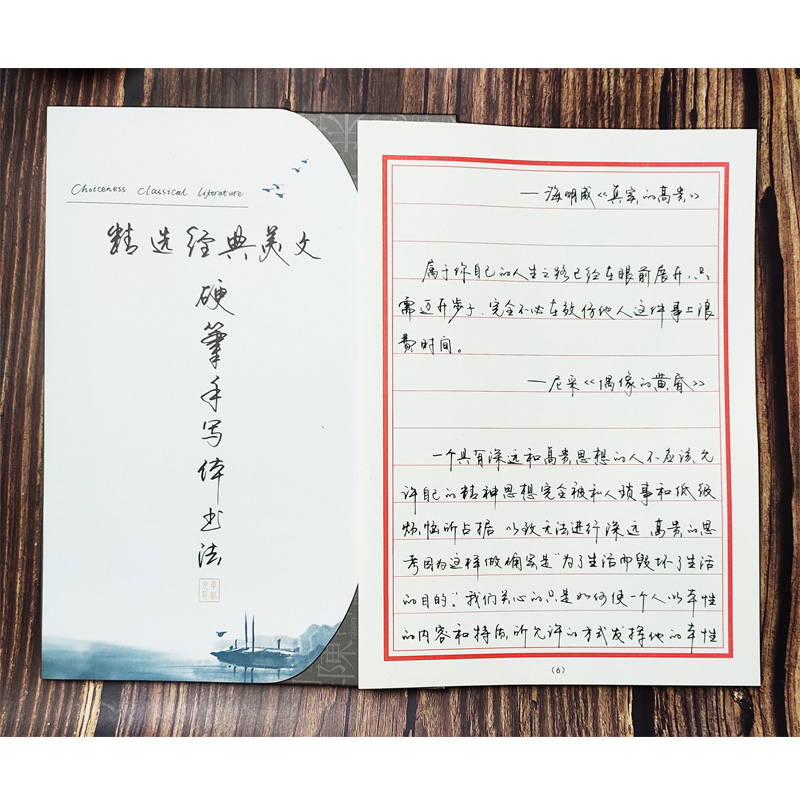 Choiceness Classical Literature
精选经典美文
硬笔手写体书法
——海明威《真实的高贵》
属于你自己的人生之路已经在眼前展开,只
需迈开步子,完全不必在效仿他人这件事上浪
费时间。
——尼采《偶像的黄昏》
一个具有深远和高贵思想的人不应该允
许自己的精神思想完全被私人琐事和低级
烦恼所占据 以致无法进行深远 高贵的思
考因为这样做确实是“为了生活而毁坏了生活
的目的”我们关心的只是如何使一个人以本性
的内容和特质所允许的方式发挥他的本性
(6)